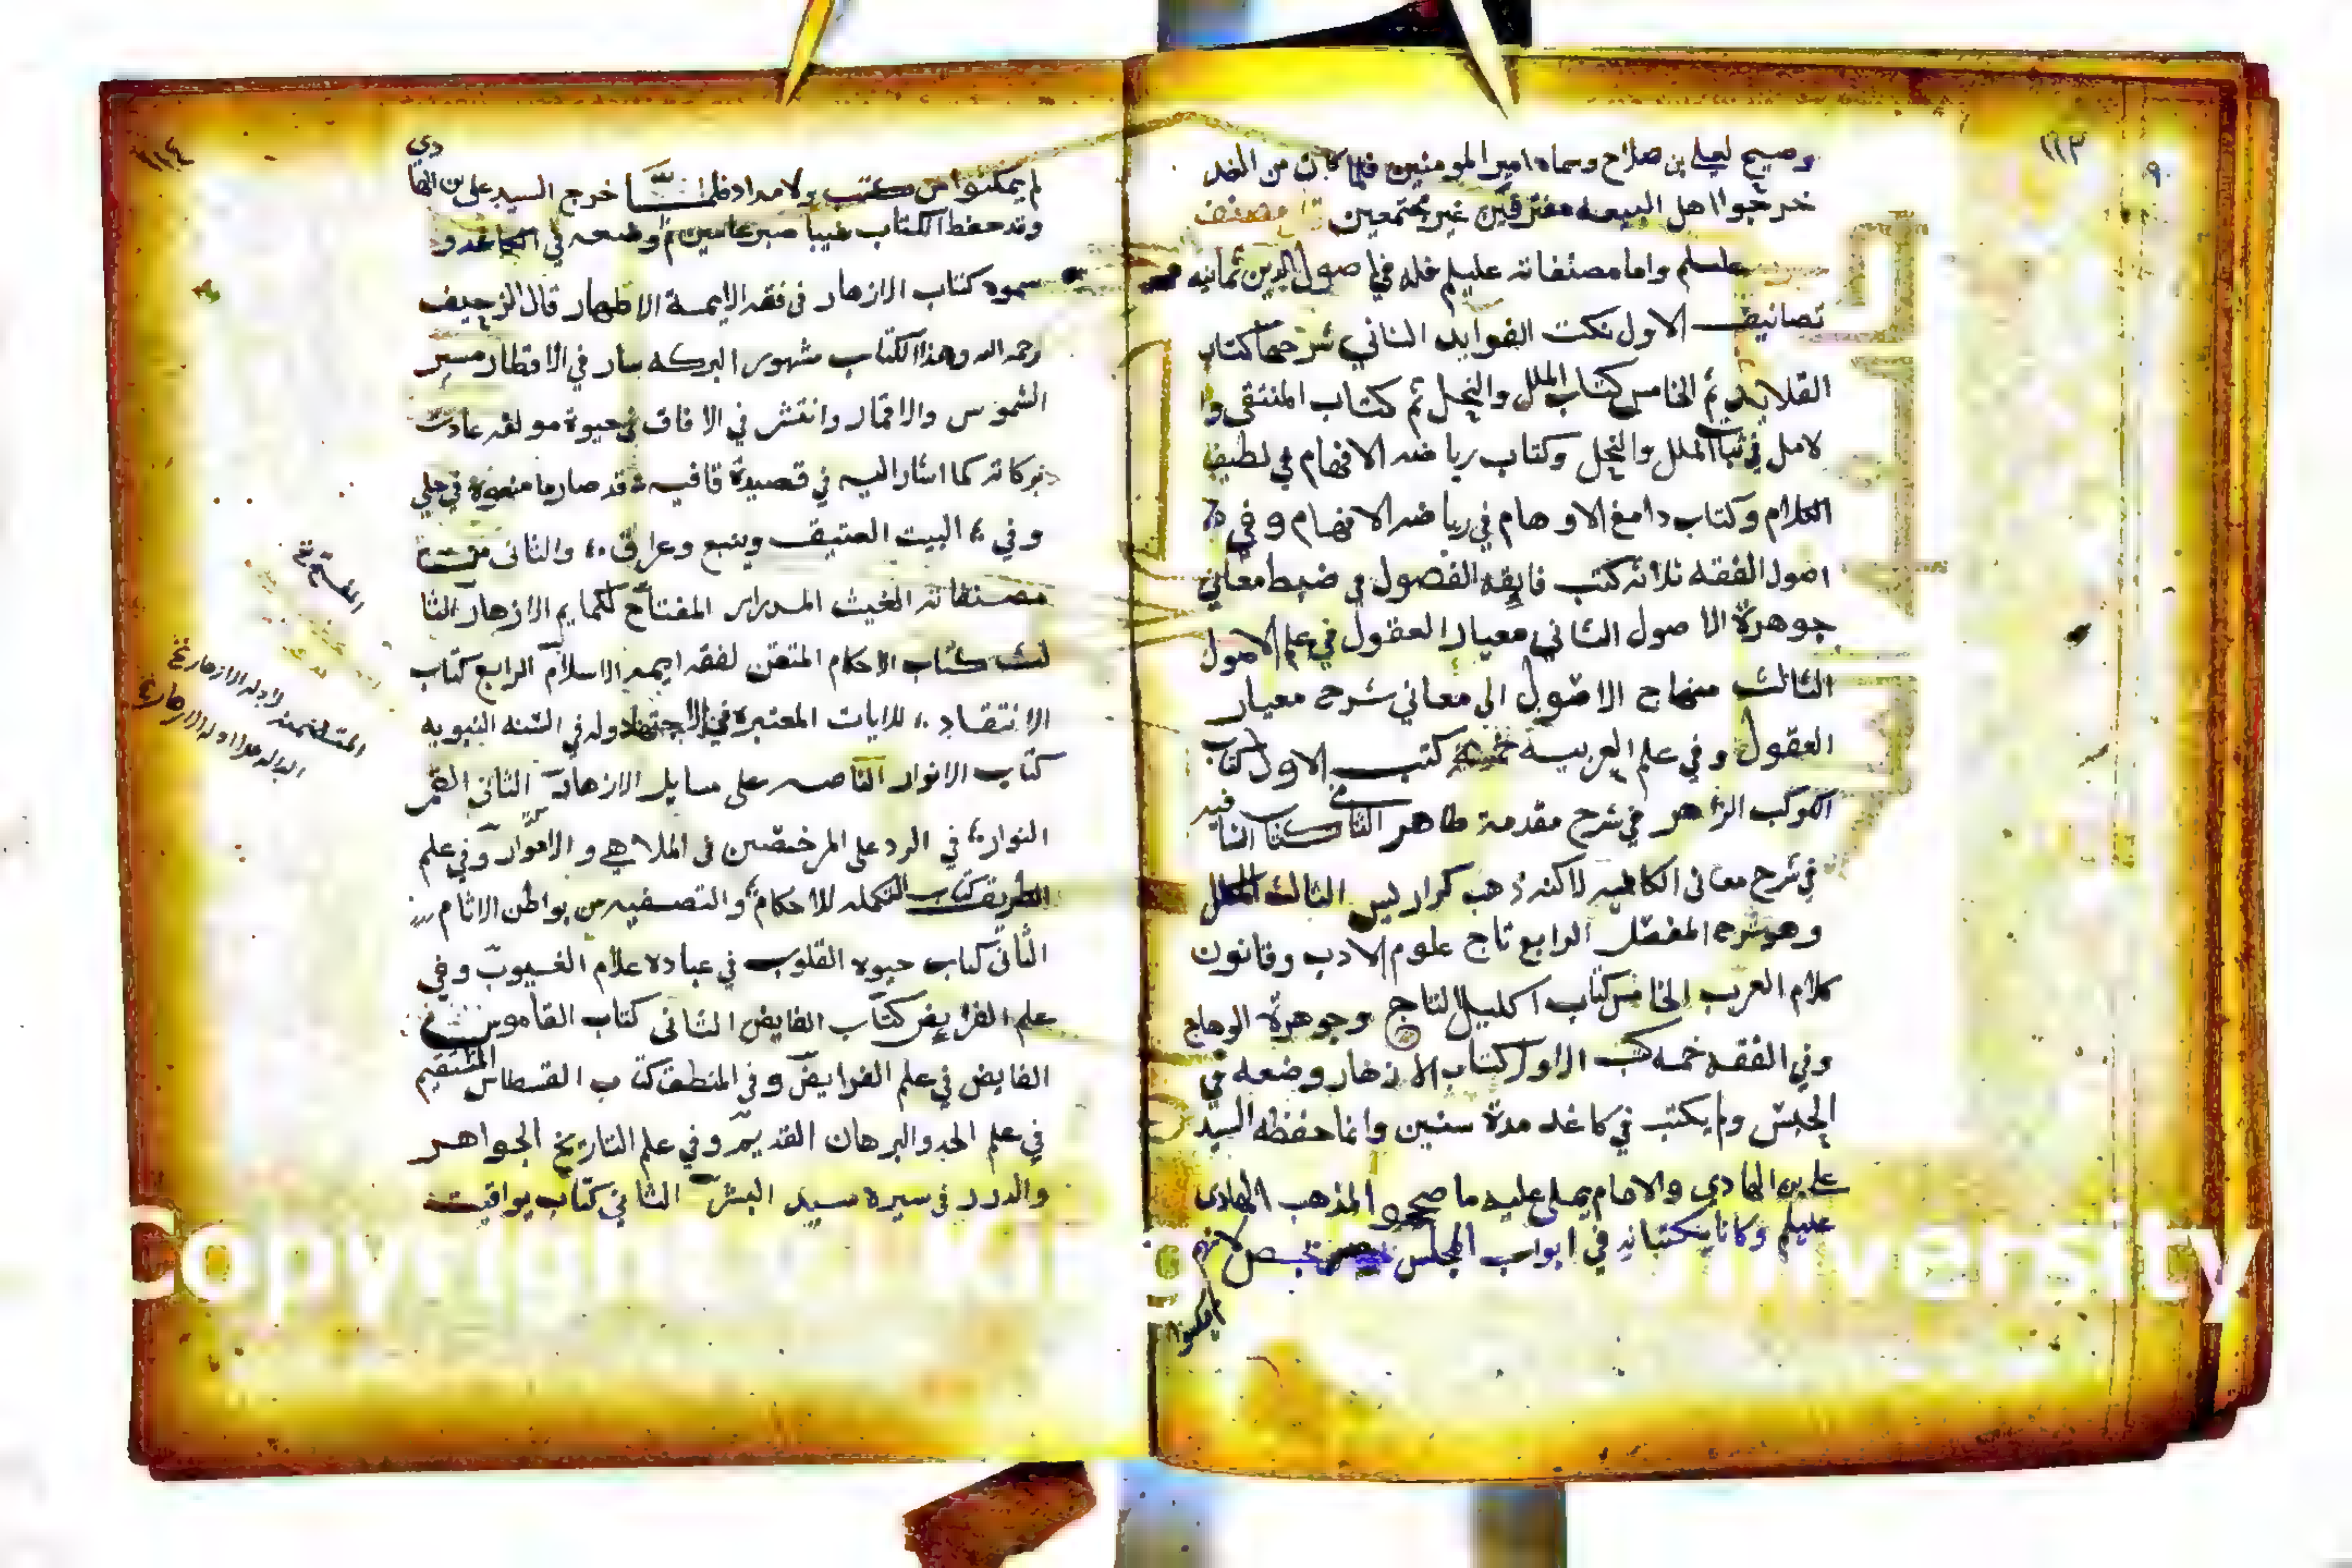 ١١٣
وصيح لعلي بن صلاح وسماه امير المومنين فلما كان من الغد
خرجوا اهل البيعه مفترقين غير مجتمعين
عليلم واما مصنفاته عليلم فله في اصول الدين ثمانيه
تصانيف الاول نكت الفوايد الثاني شرحها كتاب
القلايد ثم الخامس كتاب الملل والنحل ثم كتاب المنتقى وا
لامل في الملل والنحل وكتاب رياضه الافهام في لطيف
الكلام وكتاب دامغ الاوهام في رياضه الافهام وفي
اصول الفقه ثلاثه كتب فايقه الفصول في ضبط معاني
جوهرة الاصول الثاني معيار العقول في علم الاصول
الثالث منهاج الاصول الى معاني شرح معيار
العقول وفي علم العربيه خمسة كتب الاول كتاب
الكوكب الزاهر في شرح مقدمة طاهر الثاني كتاب الشافيه
في شرح معاني الكافيه لاكنه ذهب كراريس الثالث المكلل
وهو شرح المفصل الرابع تاج علوم الادب وقانون
كلام العرب الخامس كتاب اكليل التاج وجوهرة الوهاج
وفي الفقه خمسه كتب الاول كتاب الازهار وضعه في
الحبس ولم يكتب في كاغد مدة سنين وانما حفظه السيد
علي بن الهادي والامام يملي عليه ما صححه المذهب الهادي
عليلم وكانا يكتبانه في ابواب المجلس بجص لانهم
لم يمكنوا
دي
لم يمكنوا من كتب ولا مداد فلمّا خرج السيد علي بن الها
وقد حفظ الكتاب غيبا ثم وضعه في الكاغد و
سموه كتاب الازهار في فقه الايمة الاطهار قال الزحيف
رحمه الله وهذا الكتاب مشهور البركه سار في الاقطار مسير
الشموس والاقمار وانتشر في الافاق في حيوة مولفه عادت
بركاته كما اشار اليه في قصيدة قافيه قد صار ما في علي
وفي البيت العتيق وينبع وعراق والثاني من
مصنفاته الغيث المدرار المفتاح لكمايم الازهار الثا
لث كتاب الاحكام المتقن لفقه ايمه الاسلام الرابع كتاب
الانتقاد للايات المعتبرة في الاجتهاد وله في السنه النبويه
كتاب الانوار الناصه على مسايل الازهار الثاني القمر
النوار في الرد على المرخصين في الملاهي و وفي علم
الطريقه كتاب التكمله للاحكام والتصفيه من بواطن الاثام
الثاني كتاب حيوه القلوب في عباده علام الغيوب وفي
علم الفرايض كتاب الفايض الثاني كتاب القاموس
الفايض في علم الفرايض وفي المنطق كتاب القسطاس المستقيم
في علم الحد والبرهان القديم وفي علم التاريخ الجواهر
والدرر في سيرة سيد البشر الثاني كتاب يواقيت
المتضمنه لادله الازهار